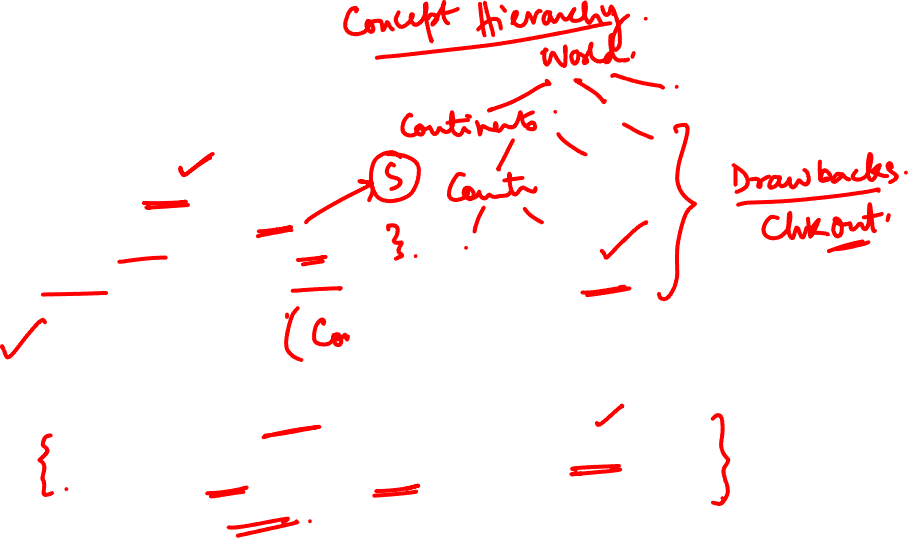 Concept Hierarchy.
World.
Continents
S
Count
Drawbacks.
Chkout.
}.
(Co
{.
}